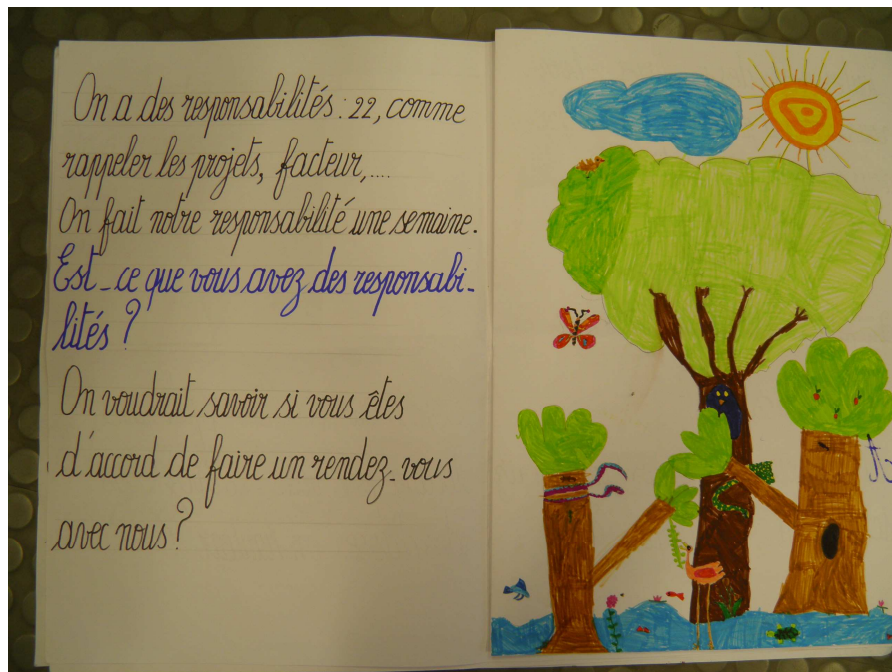 On a des responsabilités : 22, comme
rappeler les projets, facteur,....
On fait notre responsabilité une semaine.
Est-ce que vous avez des responsabi-
lités ?
On voudrait savoir si vous êtes
d'accord de faire un rendez-vous
avec nous ?